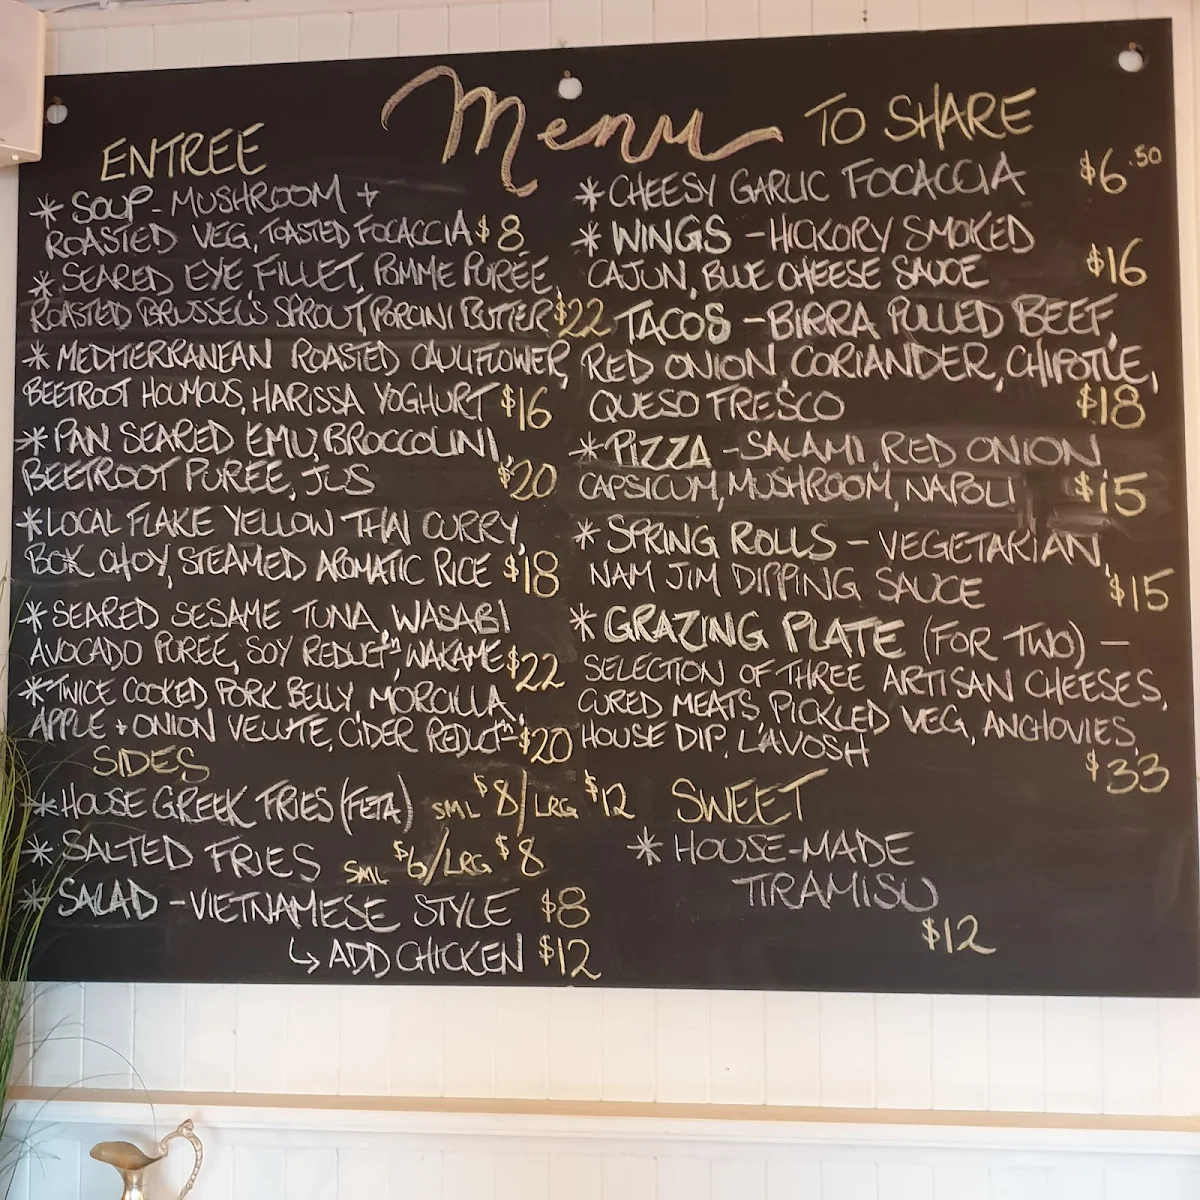 Menu
ENTREE
* SOUP - MUSHROOM +
ROASTED VEG, TOASTED FOCACCIA $8
* SEARED EYE FILLET, POMME PURÉE,
ROASTED BRUSSEL'S SPROUT, PORCINI BUTTER $22
* MEDITERRANEAN ROASTED CAULIFLOWER,
BEETROOT HOUMOUS, HARISSA YOGHURT $16
* PAN SEARED EMU, BROCCOLINI,
BEETROOT PUREE, JUS $20
* LOCAL FLAKE YELLOW THAI CURRY,
BOK CHOY, STEAMED AROMATIC RICE $18
* SEARED SESAME TUNA, WASABI
AVOCADO PUREE, SOY REDUCTⁿ, WAKAME $22
* TWICE COOKED PORK BELLY, MORCILLA,
APPLE + ONION VELUTE, CIDER REDUCTⁿ $20
SIDES
* HOUSE GREEK FRIES (FETA) SML $8/LRG $12
* SALTED FRIES SML $6/LRG $8
* SALAD - VIETNAMESE STYLE $8
↳ ADD CHICKEN $12
TO SHARE
* CHEESY GARLIC FOCACCIA $6.50
* WINGS - HICKORY SMOKED
CAJUN, BLUE CHEESE SAUCE $16
TACOS - BIRRA PULLED BEEF,
RED ONION, CORIANDER, CHIPOTLE,
QUESO FRESCO $18
* PIZZA - SALAMI, RED ONION,
CAPSICUM, MUSHROOM, NAPOLI $15
* SPRING ROLLS - VEGETARIAN,
NAM JIM DIPPING SAUCE $15
* GRAZING PLATE (FOR TWO) -
SELECTION OF THREE ARTISAN CHEESES,
CURED MEATS, PICKLED VEG, ANCHOVIES,
HOUSE DIP, L'AVOSH
$33
SWEET
* HOUSE-MADE
TIRAMISU
$12